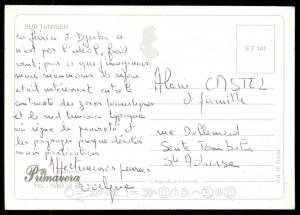 SUD TUNISIEN
en février à Djerba ce
n'est pas l'idéal, froid
vent, pas ce que j'imaginais
mais néanmoins le séjour
était intéressant entre le
contraste des zones touristiques
et le sud tunisien typique
où règne la pauvreté et
les paysages presque désertés
mais
Affectueuses pensées
S.T 101
Alain CASTEL
et famille
rue Dollemard
Sente Tombola
Ste Adresse
Primavera
TEL :